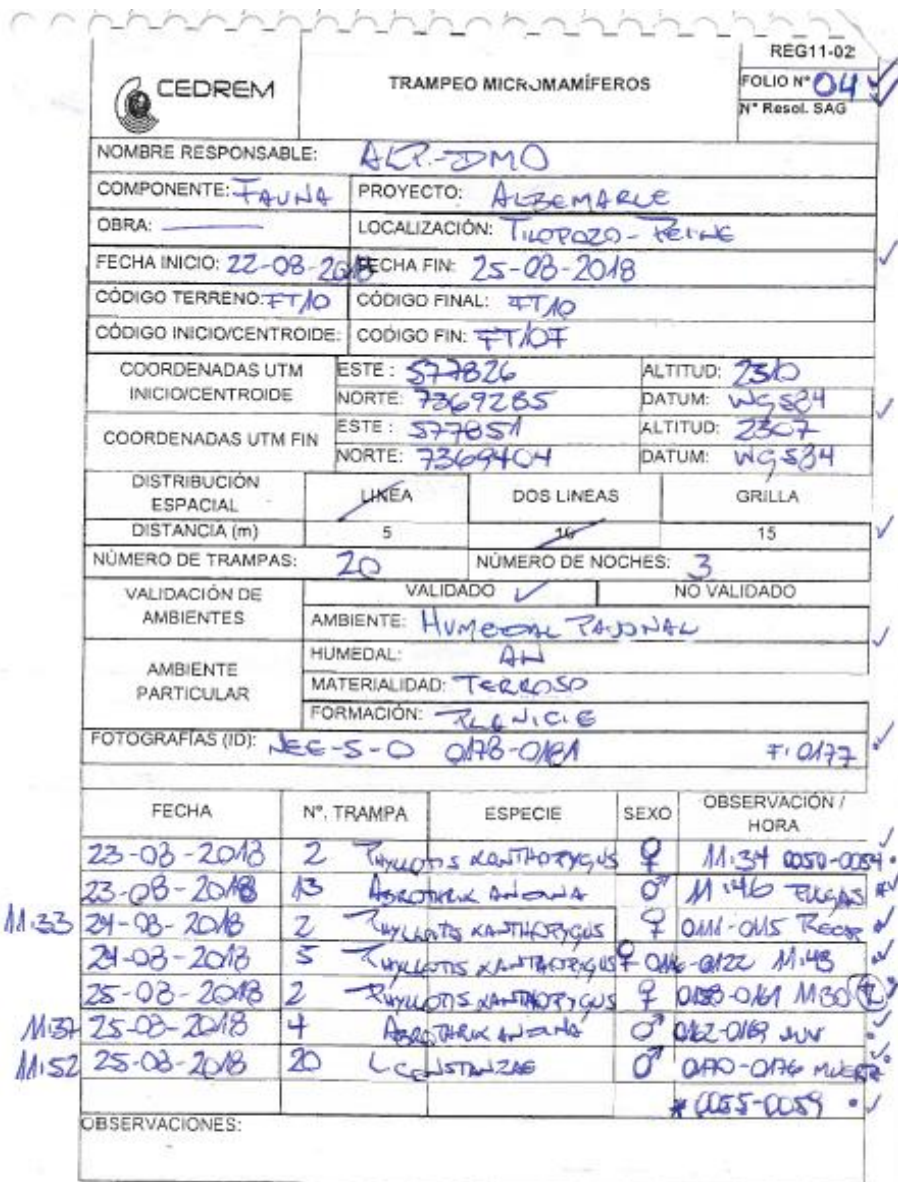 REG11-02
CEDREM
TRAMPEO MICROMAMÍFEROS
FOLIO N° 04
N° Resol. SAG
NOMBRE RESPONSABLE: ALP.-DMO
COMPONENTE: FAUNA PROYECTO: ALBEMARLE
OBRA: LOCALIZACIÓN: TILOPOZO - PEINE
FECHA INICIO: 22-08-2018 FECHA FIN: 25-08-2018
CÓDIGO TERRENO: FT10 CÓDIGO FINAL: FT10
CÓDIGO INICIO/CENTROIDE: CODIGO FIN: FT10F
COORDENADAS UTM INICIO/CENTROIDE ESTE: 577826 ALTITUD: 2310
NORTE: 7369285 DATUM: WGS84
COORDENADAS UTM FIN ESTE: 577851 ALTITUD: 2307
NORTE: 7369404 DATUM: WGS84
DISTRIBUCIÓN ESPACIAL LINEA DOS LINEAS GRILLA
DISTANCIA (m) 5 10 15
NÚMERO DE TRAMPAS: 20 NÚMERO DE NOCHES: 3
VALIDACIÓN DE AMBIENTES VALIDADO NO VALIDADO
AMBIENTE: HUMEDAL PAJONAL
AMBIENTE PARTICULAR HUMEDAL: AN
MATERIALIDAD: TERROSO
FORMACIÓN: PLANICIE
FOTOGRAFÍAS (ID): NEE-S-O 0178-0181 F: 0177
FECHA N°. TRAMPA ESPECIE SEXO OBSERVACIÓN / HORA
23-08-2018 2 PHYLLOTIS XANTHOPYGUS ♀ 11:34 0050-0054
23-08-2018 13 ABROTHRIX ANDINA ♂ 11:46 PULGAS
11:33 24-08-2018 2 PHYLLOTIS XANTHOPYGUS ♀ 0111-0115 RECAP
24-08-2018 5 PHYLLOTIS XANTHOPYGUS ♀ 0116-0122 11:48
25-08-2018 2 PHYLLOTIS XANTHOPYGUS ♀ 0158-0161 1130
11:37 25-08-2018 4 ABROTHRIX ANDINA ♂ 0162-0169 JUV
11:52 25-08-2018 20 L CONSTANZAE ♂ 0170-0176 MUERTA
* 0055-0059
OBSERVACIONES: